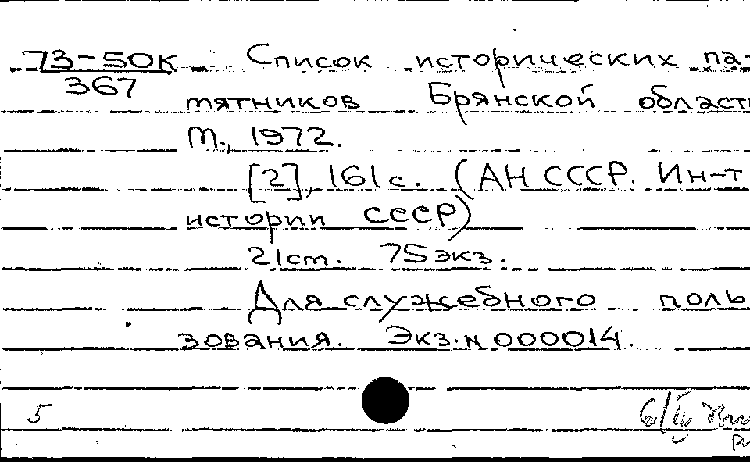 73-50к Список исторических па-
367
мятников Брянской област
М., 1972.
[2], 161 с. (АН СССР. Ин-т
истории СССР)
21 см. 75 экз.
Для служебного поль
зования. Экз. № 000014.
5